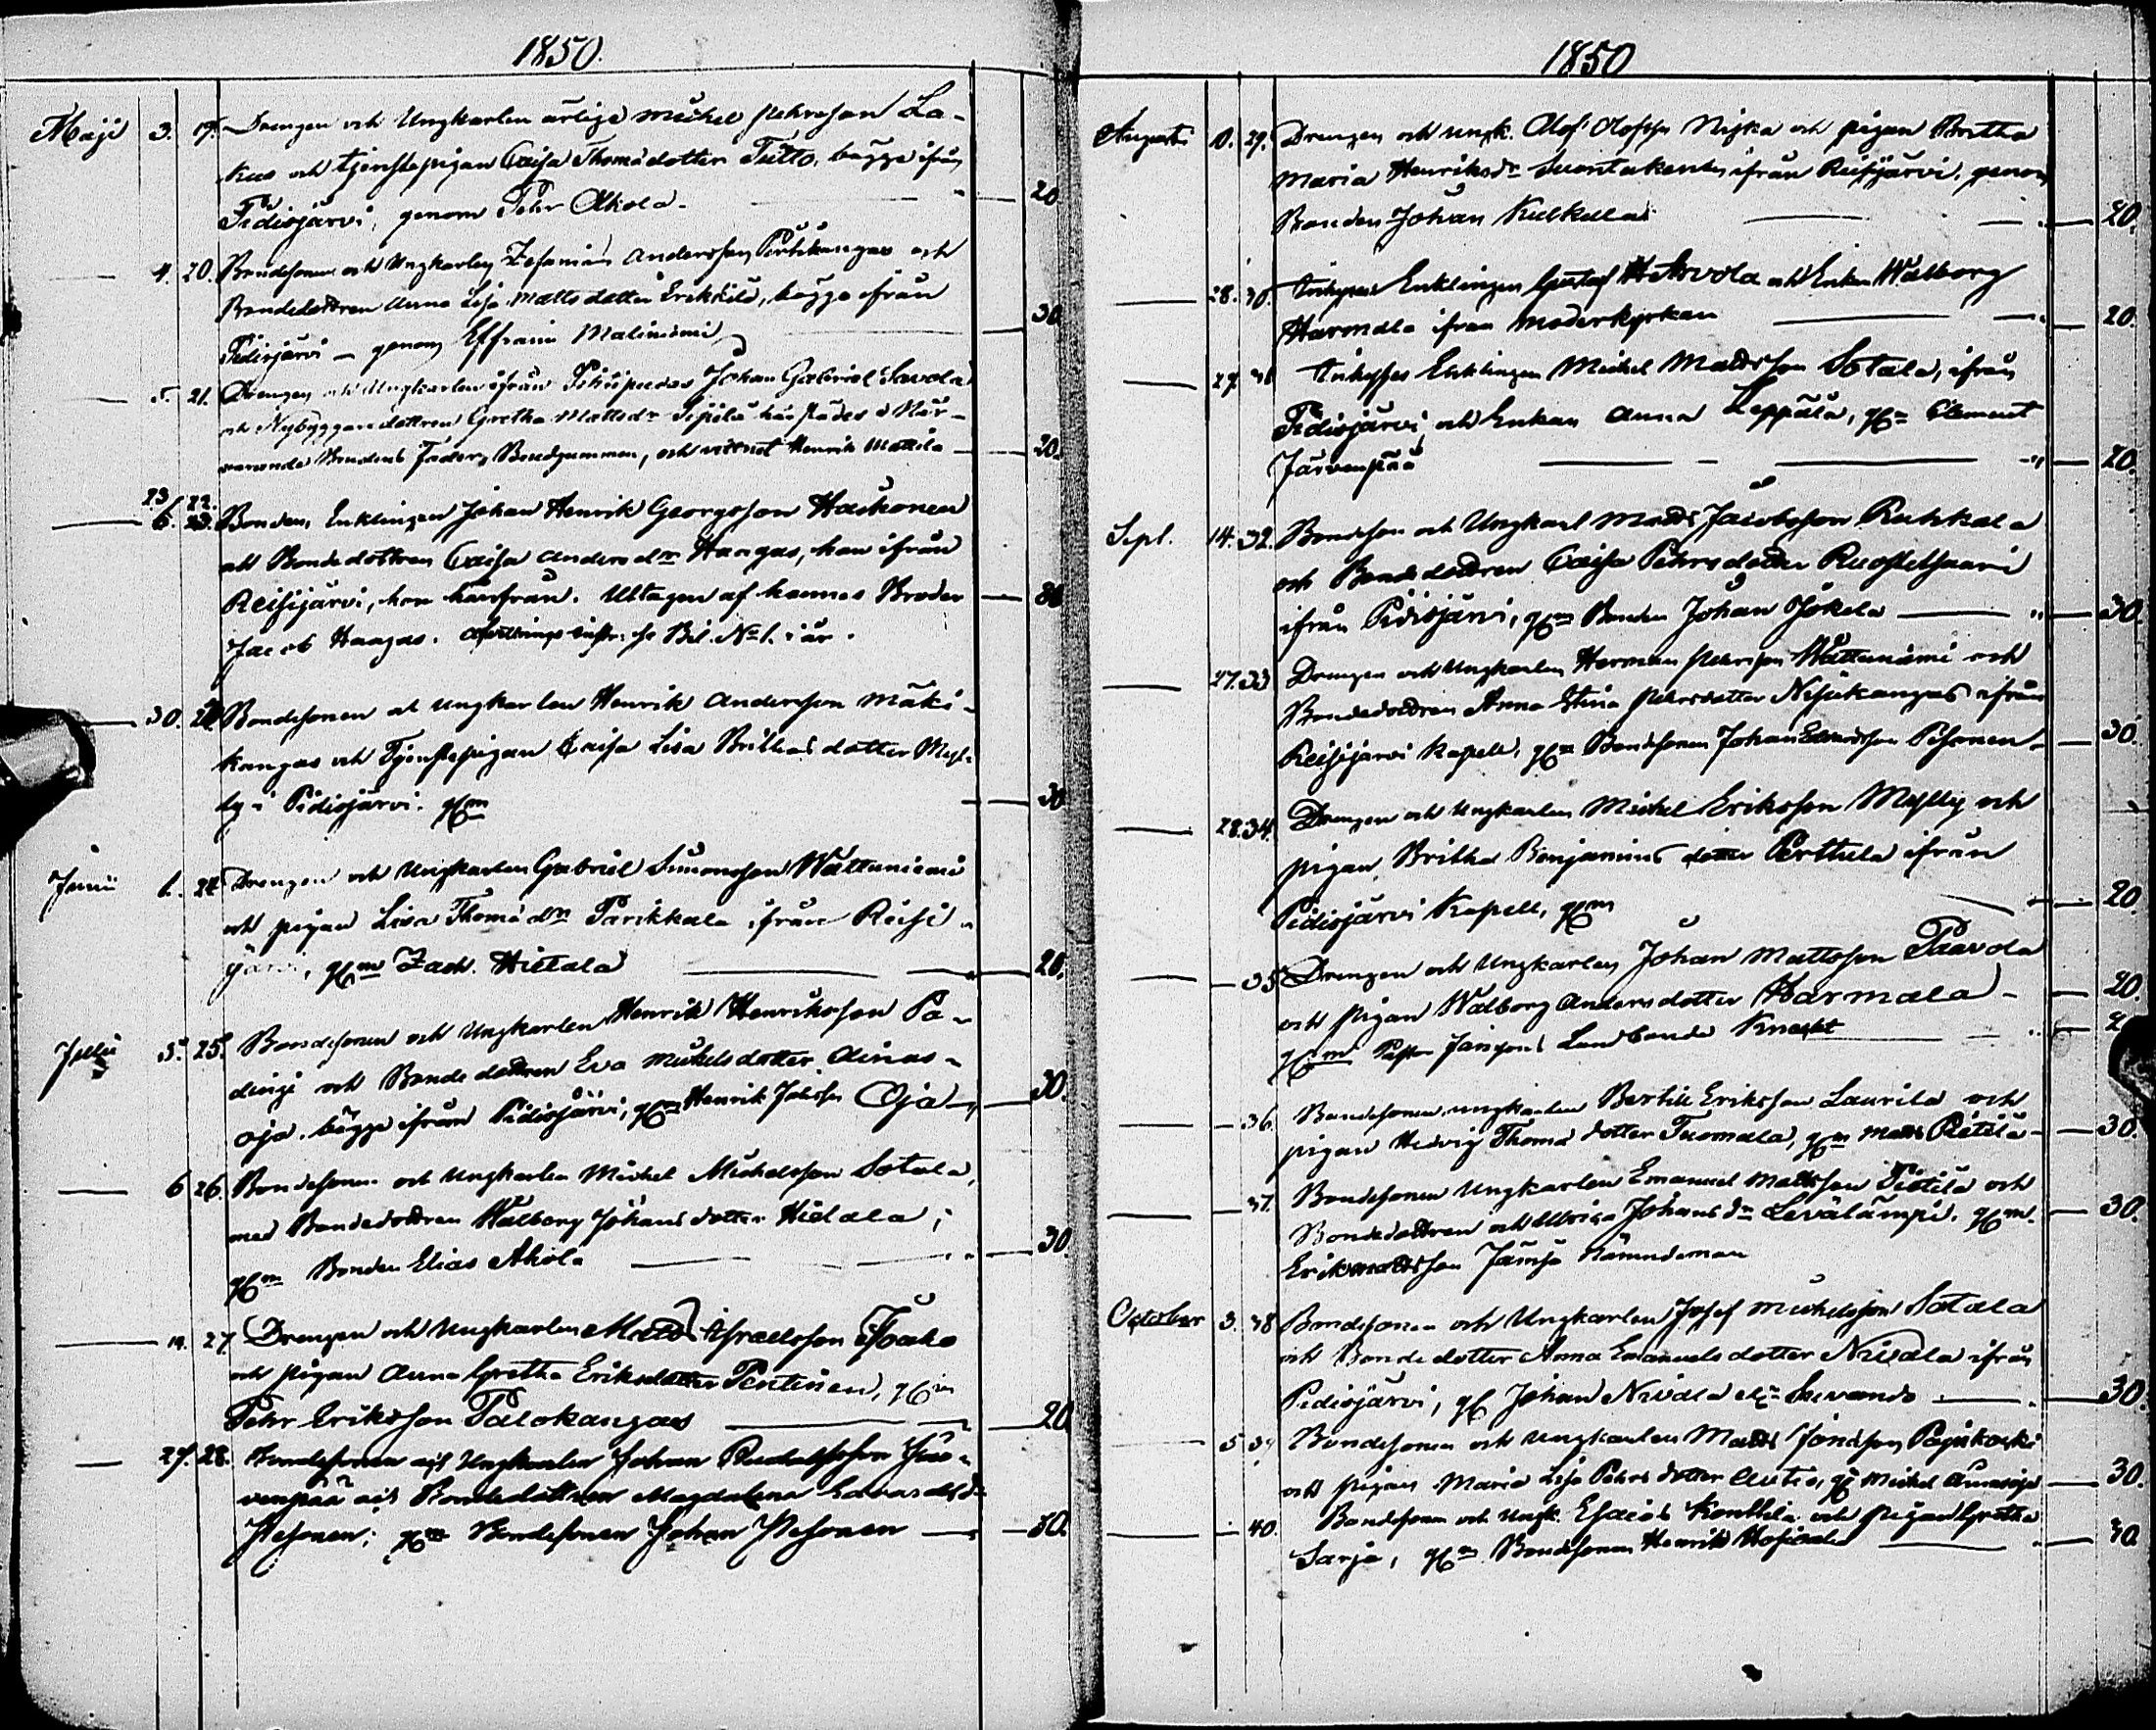 1850.
Maji 3. 19. Drengen och Ungkarlen ärlige Michel Pehrsson La-
kus och tjenstepigan Caisa Thomädotter Tutto, bägge ifrån
Pidisjärvi, genom Pehr Ahola. 20
4. 20. Bondesonen och Ungkarlen Zefanias Andersson Pirttikangas och
Bondedottren Anna Lisa Mattsdotter Erkkilä, bägge ifrån
Pidisjärvi — genom Effraim Maliniemi 30
5. 21. Drengen och Ungkarlen ifrån Pihtipudas Johan Gabriel Savola
och Nybyggaredottren Gretha Mattsdr Sipilä härstädes i När-
varande Brudens Fader, Brudgummen, och vittnet Henrik Mattila 20.
23 22.
6. 23. Bonden, Enklingen Johan Henrik Georgsson Haikonen
och Bondedottren Caisa Andersdr Haagas, han ifrån
Reisijärvi, hon härifrån. Uttagen af hennes Broder 30
Jacob Haagas. Afvittrings instr. se Bil. No 1. i år.
30. Bondesonen och Ungkarlen Henrik Andersson Mäki-
kangas och Tjenstepigan Caisa Lisa Brithas dotter Myl-
ly i Pidisjärvi. gm 30
Junii 1. 24 Drengen och Ungkarlen Gabriel Simonsson Wattuniemi
och pigan Lisa Thomädr Parikkala ifrån Reisi-
järvi, gm Zach. Hietala 20.
Julii 5. 25. Bondesonen och Ungkarlen Henrik Henriksson Pa-
dingi och Bondedottren Eva Michelsdotter Ainas-
oja, bägge ifrån Pidisjärvi, gm Henrik Johsson Oja 30.
6 26 Bondesonen och Ungkarlen Michel Michelsson Sotala,
med Bondedottren Walborg Johansdotter Hietala;
gm Bonden Elias Ahola 30
14. 27 Drengen och Ungkarlen Matts Israelsson
och pigan Anna Gretha Eriksdotter Pentinen, gm
Pehr Eriksson Palokangas 20
27. 28. Bondesonen och Ungkarlen Johan Rudolfsson Jär-
venpää och Bondedottren Magdalena Edvardsdr
Pesonen; gm Bondesonen Johan Pesonen 30.
1850
Augusti 29. Drengen och ungk. Olof Olofsson Niska och pigan Britha
Maria Henriksdr ifrån Reisijärvi, genom
Bonden Johan Kulkula 20.
28. 30. Enklingen Gustaf Arvola och Enkan Walborg
Harmala ifrån moderkyrkan 20.
29. 31 Enklingen Michel Mattsson Sotala, ifrån
Pidisjärvi och Enkan Anna Leppälä, gm Clement
Järvenpää 20.
Sept. 14. 32. Bondeson och Ungkarl Matts Jacobsson Ruhkala
och Bondedottren Caisa Pehrsdotter Ruostetsaari
ifrån Pidisjärvi, gm Bonden Johan Jokela 30.
27. 33 Drengen och Ungkarlen Herman Pehrsson Wattuniemi och
Bondedottren Anna Stina Pehrsdotter Nisukangas ifrån
Reisijärvi kapell, gm Bondesonen Johan Edvardsson Pesonen 30.
28. 34. Drengen och Ungkarlen Michel Eriksson Mylly och
pigan Britha Benjamins dotter Perttula ifrån
Pidisjärvi Kapell, gm 20.
35 Drengen och Ungkarlen Johan Mattsson Paavola
och pigan Walborg Andersdotter Harmala 20.
gm Landbonde
36. Bondesonen ungkarlen Bertill Eriksson Laurila och
pigan Hedvig Thomä dotter Tuomala, gm Matts Pietilä 30.
37. Bondesonen Ungkarlen Emanuel Mattsson Pietilä och
Bondedottren och Ulrica Johansdr Levälampi, gm 30.
Erik Mattsson Jämsä Nämndeman
October 3. 38 Bondesonen och Ungkarlen Josef Michelsson Sotala
och Bondedotter Anna Emanuelsdotter Nivala ifrån
Pidisjärvi, g Johan Nivala 30.
5 39 Bondesonen och Ungkarlen Matts Jönsson Pajukoski
och pigan Maria Lisa Pehrs dotter Autio, g Michel Ainasoja 30.
40. Bondesonen och Ungk. Esaias Konttila och pigan Gretha
Sarja, gm Bondesonen Henrik 30.